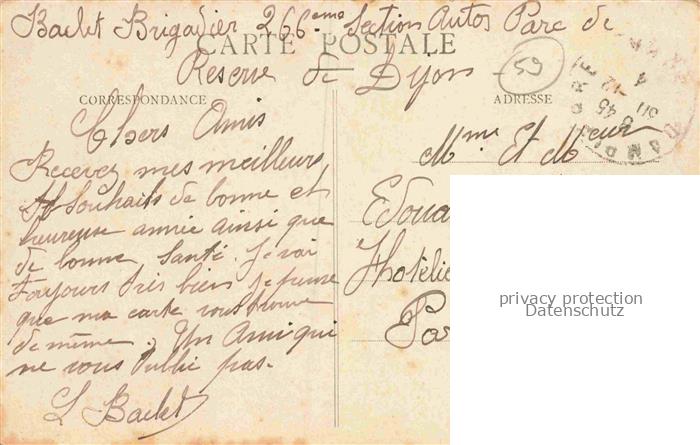 Baclet Brigadier 266eme Section Autos Parc de
CARTE POSTALE
Reserve de Dyon
59
CORRESPONDANCE
ADRESSE
Chers Amis
Recevez mes meilleurs
souhaits de bonne et
heureuse année ainsi que
de bonne Santé. Je vai
toujours très bien je pense
que ma carte vous trouve
de même. Un Ami qui
ne vous oublie pas.
L Baclet
Mme Et Meur
Edoua
hotélie
Pa
privacy protection
Datenschutz